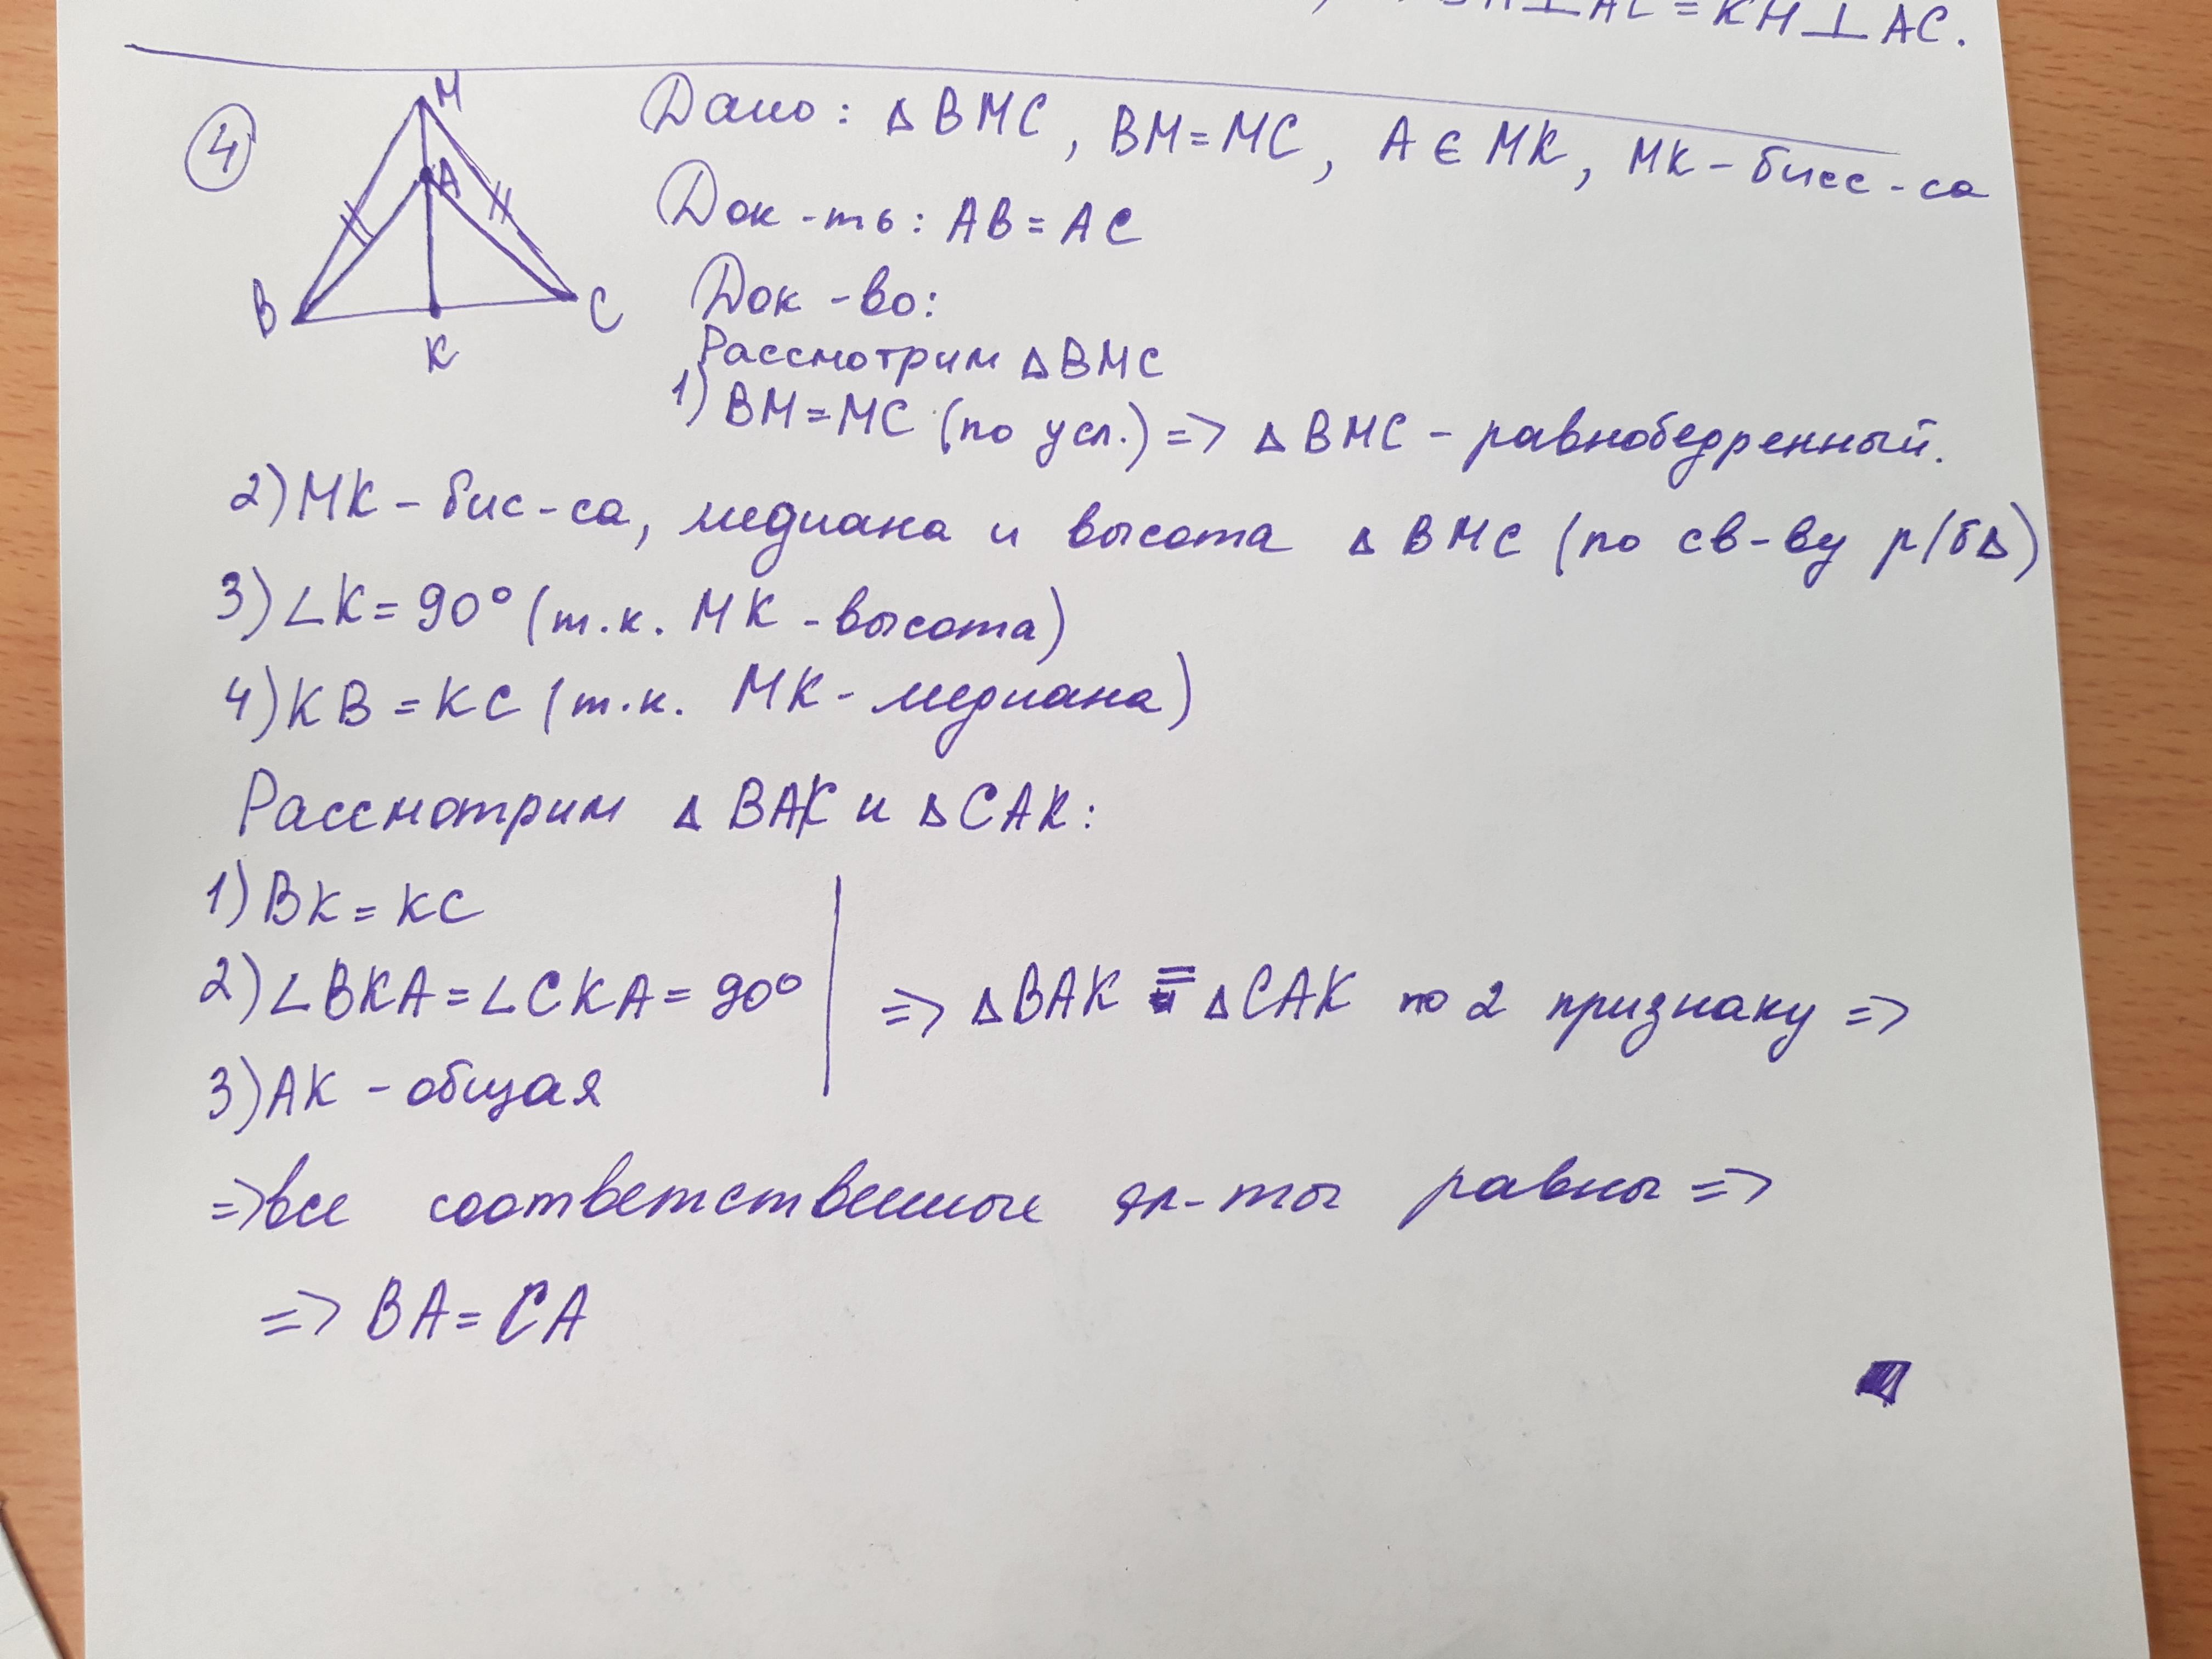 ⊥AC = KH⊥AC.
4
M
A
B
C
K
Дано: ΔBMC, BM=MC, A∈MK, MK-бисс-са
Док-ть: AB=AC
Док-во:
Рассмотрим ΔBMC
1) BM=MC (по усл.) => ΔBMC - равнобедренный.
2) MK - бис-са, медиана и высота ΔBMC (по св-ву р/б Δ)
3) ∠K = 90° (т.к. MK - высота)
4) KB = KC (т.к. MK - медиана)
Рассмотрим ΔBAK и ΔCAK:
1) BK = KC
2) ∠BKA = ∠CKA = 90°
3) AK - общая
=> ΔBAK = ΔCAK по 2 признаку =>
=> все соответственные эл-ты равны =>
=> BA = CA